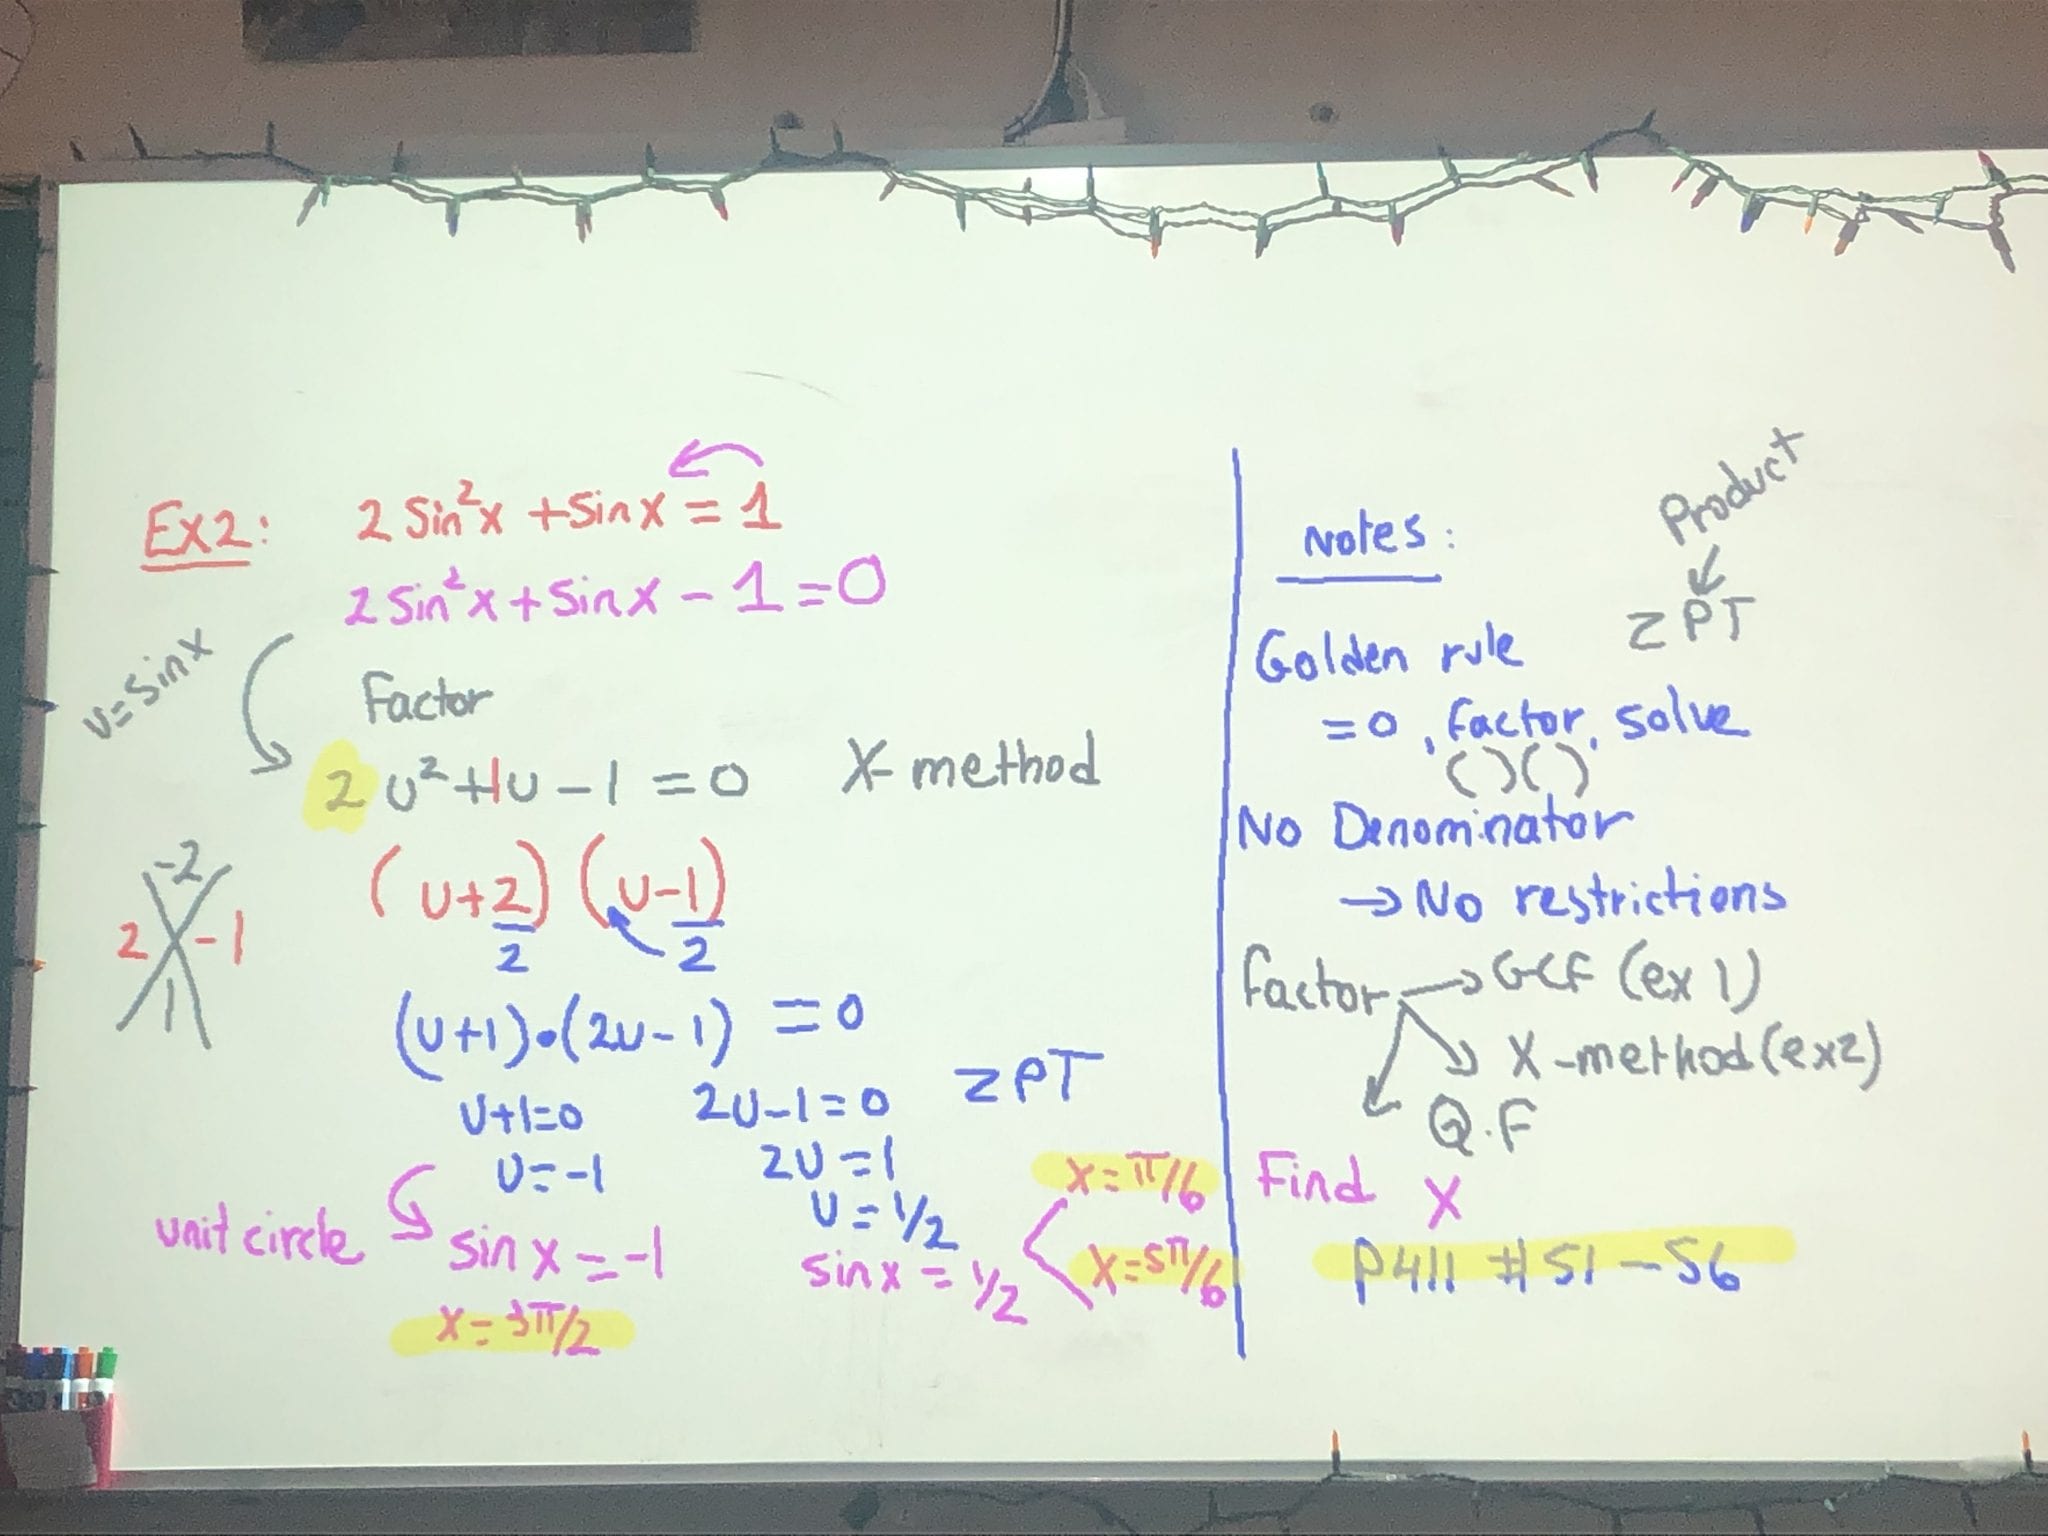 Ex2: 2 Sin²x + Sin x = 1
2 Sin²x + Sin x - 1 = 0
u = Sin x
Factor
2u² + 1u - 1 = 0 X-method
(u+2/2) (u-1/2)
-2
2 -1
1
(u+1)•(2u-1) = 0
ZPT
u+1=0 2u-1=0
u=-1 2u=1
u=1/2
unit circle sin x = -1 sin x = 1/2
x=π/6
x=5π/6
x=3π/2
Notes:
Product
ZPT
Golden rule
=0, factor, solve
( )( )
No Denominator
→ No restrictions
factor → GCF (ex 1)
X-method (ex2)
Q.F
Find X
P411 #51-56